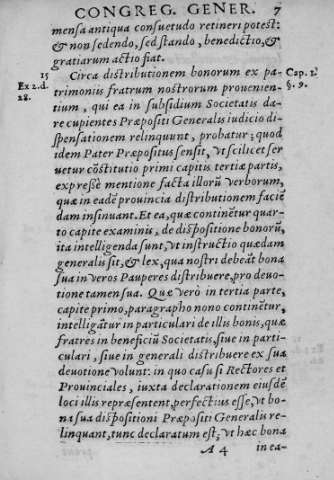 CONGREG. GENER. 7
mensa antiqua consuetudo retineri potest:
& non sedendo, sed stando, benedictio, &
gratiarum actio fiat.
15 Circa distributionem bonorum ex pa- Cap. 1.
Ex 2. d. trimoniis fratrum nostrorum prouenien- §. 9.
28. tium, qui ea in subsidium Societatis da-
re cupientes Præpositi Generalis iudicio di-
spensationem relinquunt, probatur; quod
idem Pater Præpositus sensit, vt scilicet ser
uetur cõstitutio primi capitis tertiæ partis,
expressè mentione facta illorũ verborum,
quæ in eadẽ prouincia distributionem faciẽ
dam insinuant. Et ea, quæ continẽtur quar-
to capite examinis, de dispositione bonorũ,
ita intelligenda sunt, vt instructio quædam
generalis sit, & lex, qua nostri debeãt bona
sua in veros Pauperes distribuere, pro deuo-
tione tamen sua. Quæ verò in tertia parte,
capite primo, paragrapho nono continẽtur,
intelligãtur in particulari de illis bonis, quæ
fratres in beneficiũ Societatis, siue in parti-
culari, siue in generali distribuere ex sua
deuotione volunt: in quo casu si Rectores et
Prouinciales, iuxta declarationem eiusdẽ
loci illis repræsentent, perfectius esse, vt bo-
na sua dispositioni Præpositi Generalis re-
linquant, tunc declaratum est, vt hæc bona
A 4 in ea-